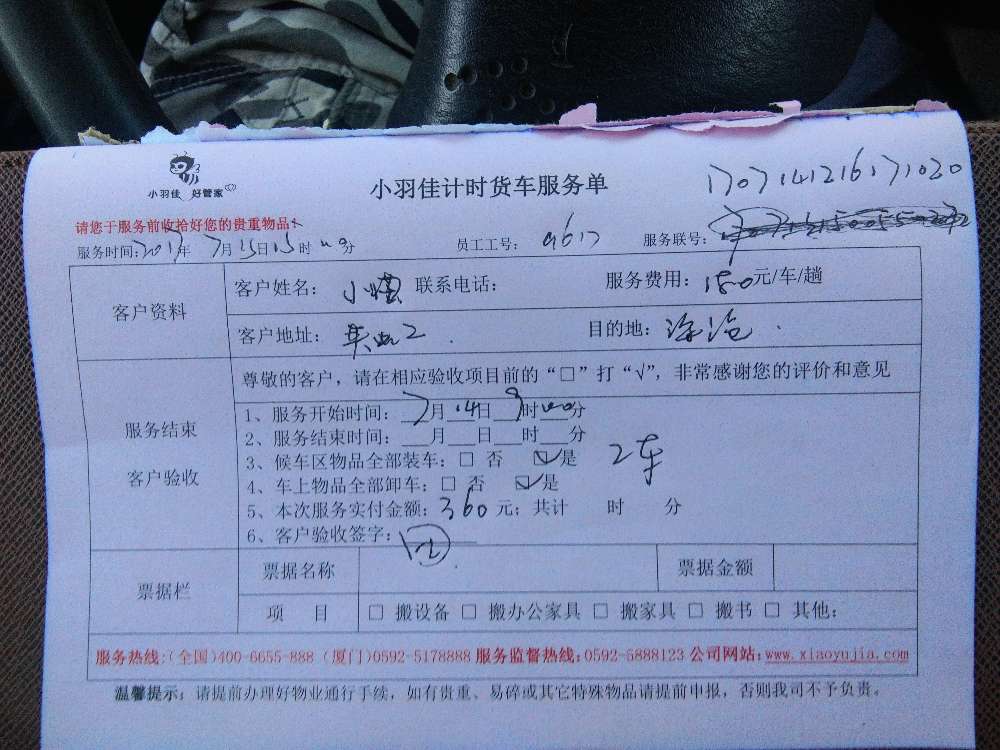 小羽佳 好管家
小羽佳计时货车服务单
1707141216171030
请您于服务前收拾好您的贵重物品!
服务时间:2017年7月15日15时00分 员工工号: 9617 服务联号:
客户资料
客户姓名: 小 联系电话: 服务费用: 180元/车/趟
客户地址: 2 目的地: 海沧
服务结束
客户验收
尊敬的客户，请在相应验收项目前的“□”打“√”，非常感谢您的评价和意见
1、服务开始时间: 7月14日9时00分
2、服务结束时间: ___月___日___时___分
3、候车区物品全部装车: □ 否 ☑是 2车
4、车上物品全部卸车: □ 否 ☑是
5、本次服务实付金额: 360 元; 共计 时 分
6、客户验收签字:
票据栏
票据名称 票据金额
项 目 □ 搬设备 □ 搬办公家具 □ 搬家具 □ 搬书 □ 其他:
服务热线:(全国)400-6655-888 (厦门)0592-5178888 服务监督热线:0592-5888123 公司网站:www.xiaoyujia.com
温馨提示: 请提前办理好物业通行手续，如有贵重、易碎或其它特殊物品请提前申报，否则我司不予负责。